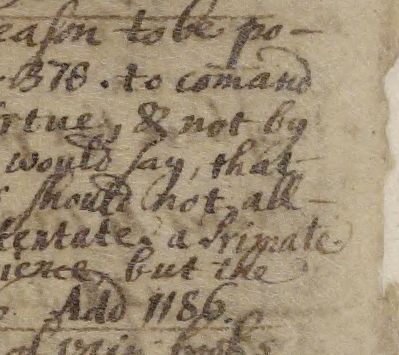 eason to be po-
B78. to comand
rtue, & not by
would say, that
should not all-
tentate. a Private
ience, but the
Add 1186.
of vain books